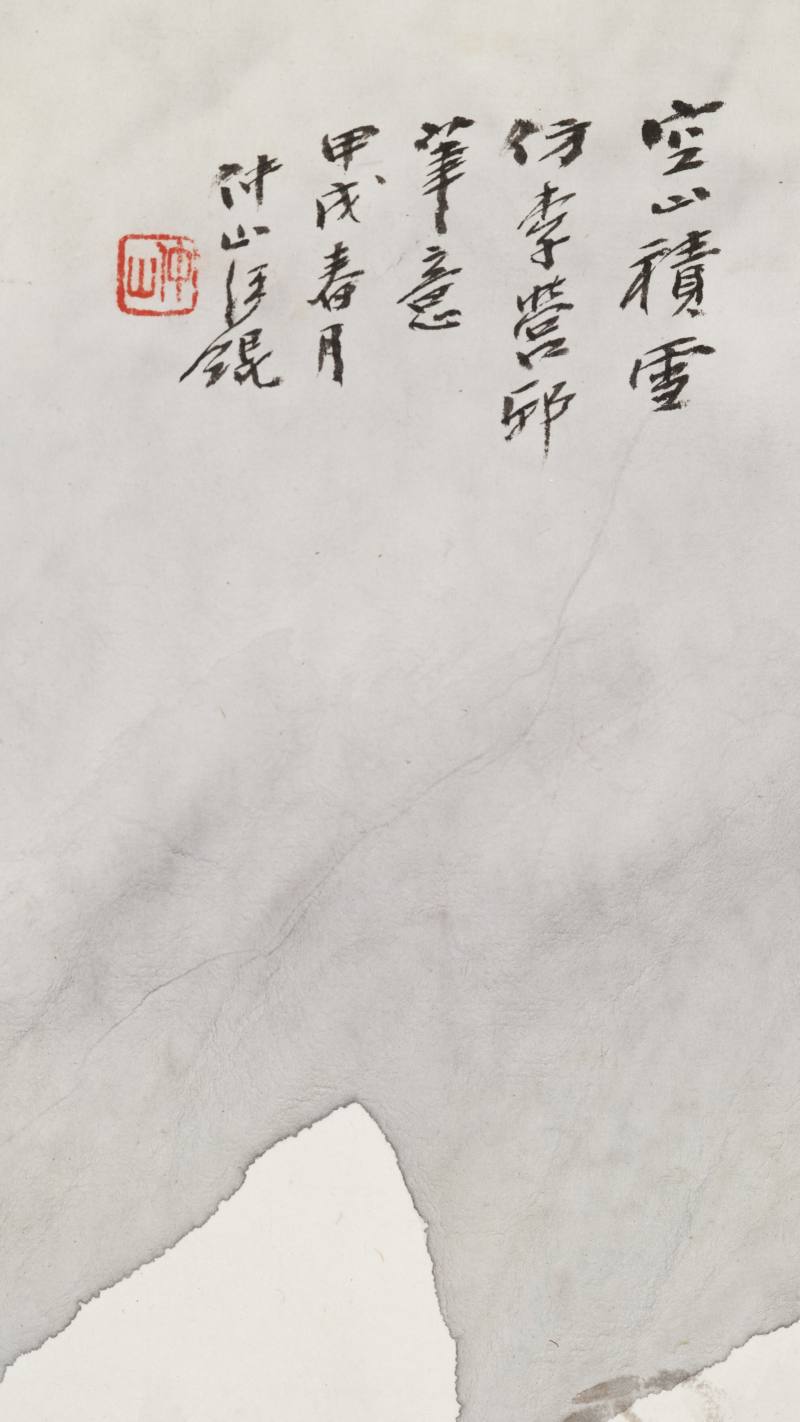 空山積雪
仿李營邱
筆意
甲戌春月
仲山汪錕
仲山